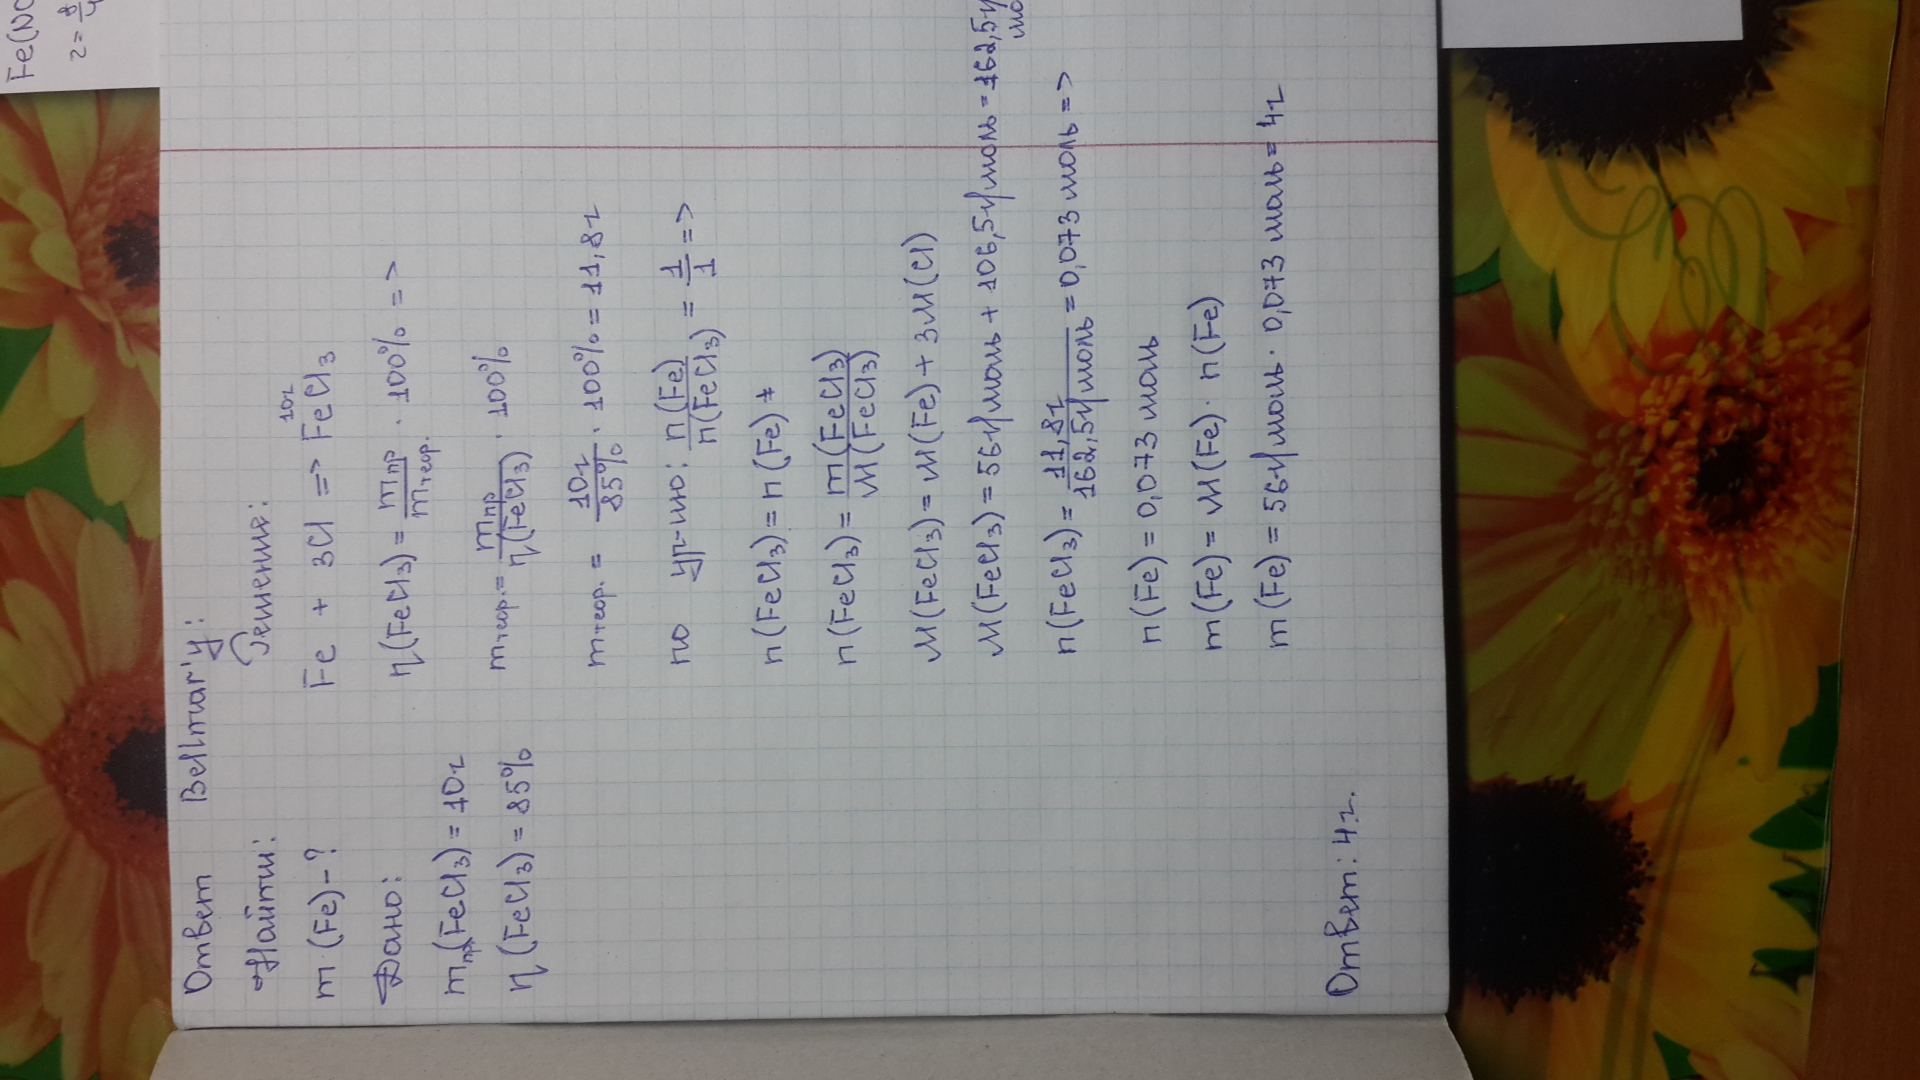 Fe(NO
г = 8/4
Ответ Bellmar'у:
Найти: Решение:
m (Fe) - ? Fe + 3Cl => FeCl₃
10г
Дано:
η(FeCl₃) = mпр/mтеор. · 100% =>
mпр(FeCl₃) = 10г
mтеор. = mпр/η(FeCl₃) · 100%
η (FeCl₃) = 85%
mтеор. = 10г/85% · 100% = 11,8г
по ур-ию: n(Fe)/n(FeCl₃) = 1/1 =>
n(FeCl₃) = n(Fe)
n(FeCl₃) = m(FeCl₃)/M(FeCl₃)
M(FeCl₃) = M(Fe) + 3M(Cl)
M(FeCl₃) = 56г/моль + 106,5г/моль = 162,5г/
мо
n(FeCl₃) = 11,8г/162,5г/моль = 0,073 моль =>
n(Fe) = 0,073 моль
m(Fe) = M(Fe) · n(Fe)
m(Fe) = 56г/моль · 0,073 моль = 4г
Ответ: 4г.